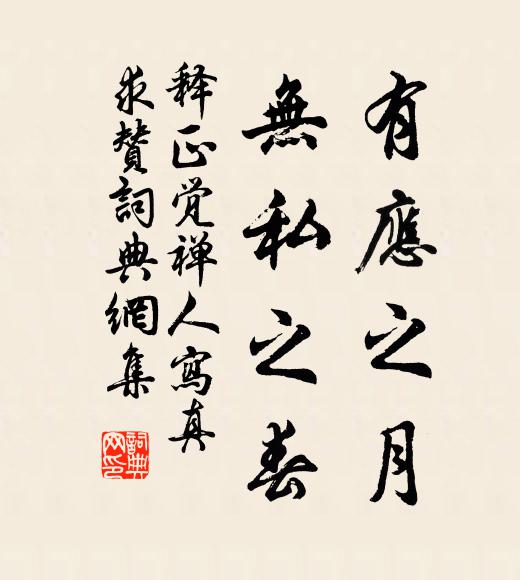 有應之月
無私之春
释正觉禅人寫真
求贊詞典網集
詞典网印